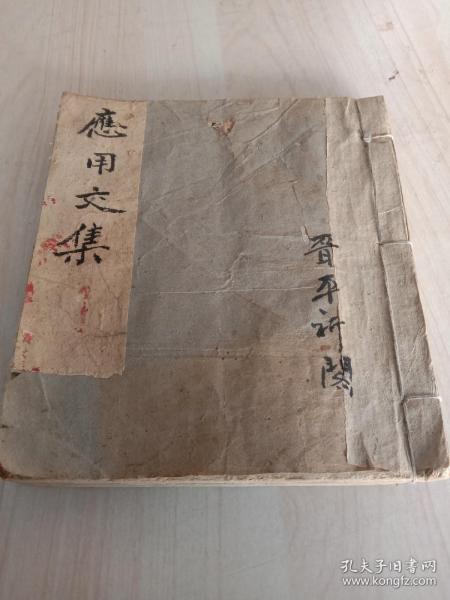 應用文集
晋平祈閱
孔夫子旧书网
www.kongfz.com